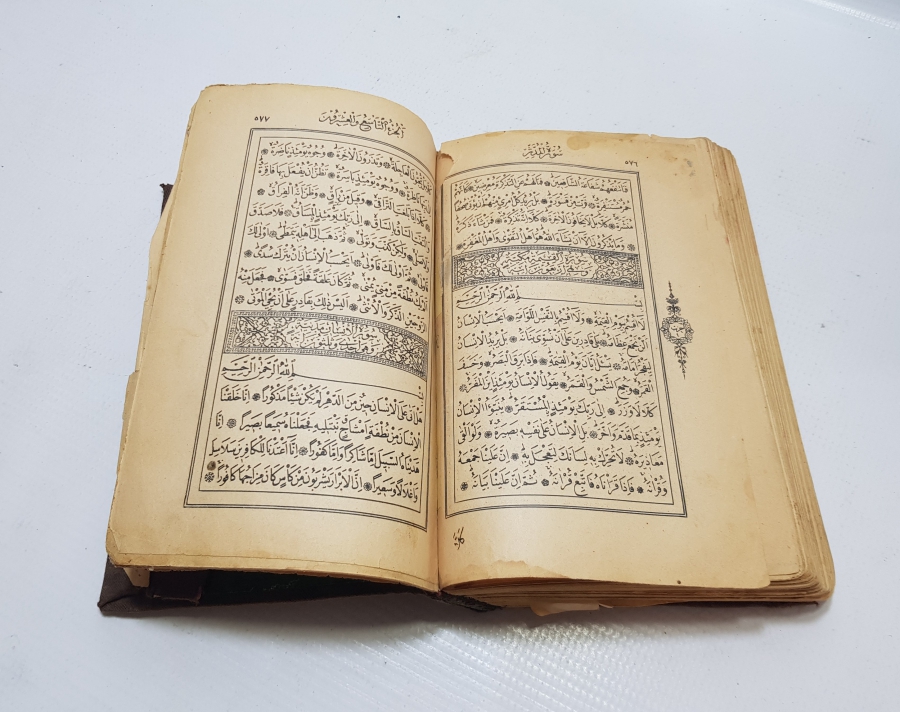 ٥٧٦
سُورَةُ الْمُدَّثِّرِ
فَمَا تَنْفَعُهُمْ شَفَاعَةُ الشَّافِعِينَ ❋ فَمَا لَهُمْ عَنِ التَّذْكِرَةِ مُعْرِضِينَ ❋ كَاَنَّهُمْ
حُمُرٌ مُسْتَنْفِرَةٌ ❋ فَرَّتْ مِنْ قَسْوَرَةٍ ❋ بَلْ يُرِيدُ كُلُّ امْرِئٍ مِنْهُمْ اَنْ يُؤْتٰى صُحُفًا
مُنَشَّرَةً ❋ كَلَّا بَلْ لَا يَخَافُونَ الْاٰخِرَةَ ❋ كَلَّا اِنَّهُ تَذْكِرَةٌ ❋ فَمَنْ شَاءَ ذَكَرَهُ
❋ وَمَا يَذْكُرُونَ اِلَّا اَنْ يَشَاءَ اللّٰهُ هُوَ اَهْلُ التَّقْوٰى وَاَهْلُ الْمَغْفِرَةِ ❋
سُورَةُ الْقِيٰمَةِ مَكِّيَّةٌ
بِسْمِ اللّٰهِ الرَّحْمٰنِ الرَّحِيمِ
لَا اُقْسِمُ بِيَوْمِ الْقِيٰمَةِ ❋ وَلَا اُقْسِمُ بِالنَّفْسِ اللَّوَّامَةِ ❋ اَيَحْسَبُ الْاِنْسَانُ
اَلَّنْ نَجْمَعَ عِظَامَهُ ❋ بَلٰى قَادِرِينَ عَلٰى اَنْ نُسَوِّىَ بَنَانَهُ ❋ بَلْ يُرِيدُ الْاِنْسَانُ
لِيَفْجُرَ اَمَامَهُ ❋ يَسْئَلُ اَيَّانَ يَوْمُ الْقِيٰمَةِ ❋ فَاِذَا بَرِقَ الْبَصَرُ ❋ وَخَسَفَ
الْقَمَرُ ❋ وَجُمِعَ الشَّمْسُ وَالْقَمَرُ ❋ يَقُولُ الْاِنْسَانُ يَوْمَئِذٍ اَيْنَ الْمَفَرُّ ❋
كَلَّا لَا وَزَرَ ❋ اِلٰى رَبِّكَ يَوْمَئِذٍ الْمُسْتَقَرُّ ❋ يُنَبَّؤُا الْاِنْسَانُ
يَوْمَئِذٍ بِمَا قَدَّمَ وَاَخَّرَ ❋ بَلِ الْاِنْسَانُ عَلٰى نَفْسِهِ بَصِيرَةٌ ❋ وَلَوْ اَلْقٰى
مَعَاذِيرَهُ ❋ لَا تُحَرِّكْ بِهِ لِسَانَكَ لِتَعْجَلَ بِهِ ❋ اِنَّ عَلَيْنَا جَمْعَهُ
وَقُرْاٰنَهُ ❋ فَاِذَا قَرَاْنَاهُ فَاتَّبِعْ قُرْاٰنَهُ ❋ ثُمَّ اِنَّ عَلَيْنَا بَيَانَهُ ❋
كَلَّا بَلْ
اَلْجُزْءُ التَّاسِعُ وَالْعِشْرُونَ
٥٧٧
كَلَّا بَلْ تُحِبُّونَ الْعَاجِلَةَ ❋ وَتَذَرُونَ الْاٰخِرَةَ ❋ وُجُوهٌ يَوْمَئِذٍ نَاضِرَةٌ ❋
اِلٰى رَبِّهَا نَاظِرَةٌ ❋ وَوُجُوهٌ يَوْمَئِذٍ بَاسِرَةٌ ❋ تَظُنُّ اَنْ يُفْعَلَ بِهَا فَاقِرَةٌ
❋ كَلَّا اِذَا بَلَغَتِ التَّرَاقِىَ ❋ وَقِيلَ مَنْ رَاقٍ ❋ وَظَنَّ اَنَّهُ الْفِرَاقُ ❋
وَالْتَفَّتِ السَّاقُ بِالسَّاقِ ❋ اِلٰى رَبِّكَ يَوْمَئِذٍ الْمَسَاقُ ❋ فَلَا صَدَّقَ
وَلَا صَلّٰى ❋ وَلٰكِنْ كَذَّبَ وَتَوَلّٰى ❋ ثُمَّ ذَهَبَ اِلٰى اَهْلِهِ يَتَمَطّٰى ❋ اَوْلٰى لَكَ
فَاَوْلٰى ❋ ثُمَّ اَوْلٰى لَكَ فَاَوْلٰى ❋ اَيَحْسَبُ الْاِنْسَانُ اَنْ يُتْرَكَ سُدًى ❋
اَلَمْ يَكُ نُطْفَةً مِنْ مَنِىٍّ يُمْنٰى ❋ ثُمَّ كَانَ عَلَقَةً فَخَلَقَ فَسَوّٰى ❋ فَجَعَلَ مِنْهُ
الزَّوْجَيْنِ الذَّكَرَ وَالْاُنْثٰى ❋ اَلَيْسَ ذٰلِكَ بِقَادِرٍ عَلٰى اَنْ يُحْيِىَ الْمَوْتٰى ❋
سُورَةُ الْاِنْسَانِ مَدَنِيَّةٌ
وَهِىَ اِحْدٰى وَثَلٰثُونَ اٰيَةً
بِسْمِ اللّٰهِ الرَّحْمٰنِ الرَّحِيمِ
هَلْ اَتٰى عَلَى الْاِنْسَانِ حِينٌ مِنَ الدَّهْرِ لَمْ يَكُنْ شَيْئًا مَذْكُورًا ❋ اِنَّا خَلَقْنَا
الْاِنْسَانَ مِنْ نُطْفَةٍ اَمْشَاجٍ نَبْتَلِيهِ فَجَعَلْنَاهُ سَمِيعًا بَصِيرًا ❋ اِنَّا
هَدَيْنَاهُ السَّبِيلَ اِمَّا شَاكِرًا وَاِمَّا كَفُورًا ❋ اِنَّا اَعْتَدْنَا لِلْكَافِرِينَ سَلَاسِلَ
وَاَغْلَالًا وَسَعِيرًا ❋ اِنَّ الْاَبْرَارَ يَشْرَبُونَ مِنْ كَاْسٍ كَانَ مِزَاجُهَا كَافُورًا ❋